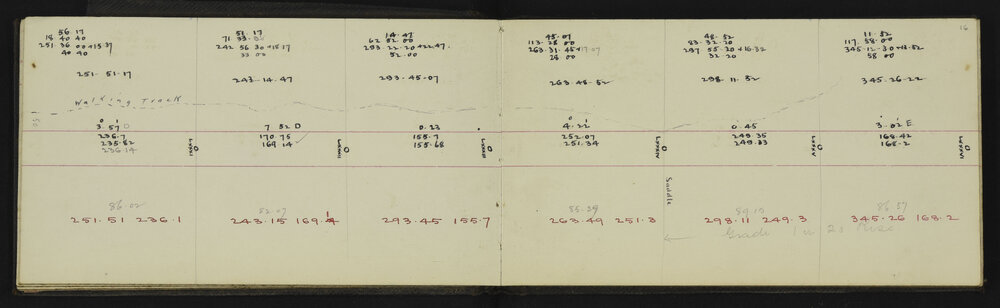 16
56.17
18 40 40
251 36 00 +15 37
40 40
251 51.17
51.17
242 56 30 +15 17
33 00
243 14.47
14.47
62 52.00
293 22.20 +22.47
52.00
293.45.07
45.07
113 28 00
263.31.45 +17.07
28 00
263 48.52
48.52
83.32 20
297 55.20 +16.32
32 20
298.11.52
11.52
117.58.00
345.12.30
58 00
345.26.22
Walking Track
3° 57' D
236.7
235.82
236.14
7 52 D
170.75
169 14
0.23
155.7
155.68
4.22
252.07
251.34
0.45
249.35
249.33
3.02 E
168.42
168.2
Saddle
86.02
251.51 236.1
52.07
243.15 169.1
293.45 155.7
55.39
263.49 251.3
298.11 249.3
86.37
345.26 168.2
← Grade 1 in 25 Rise